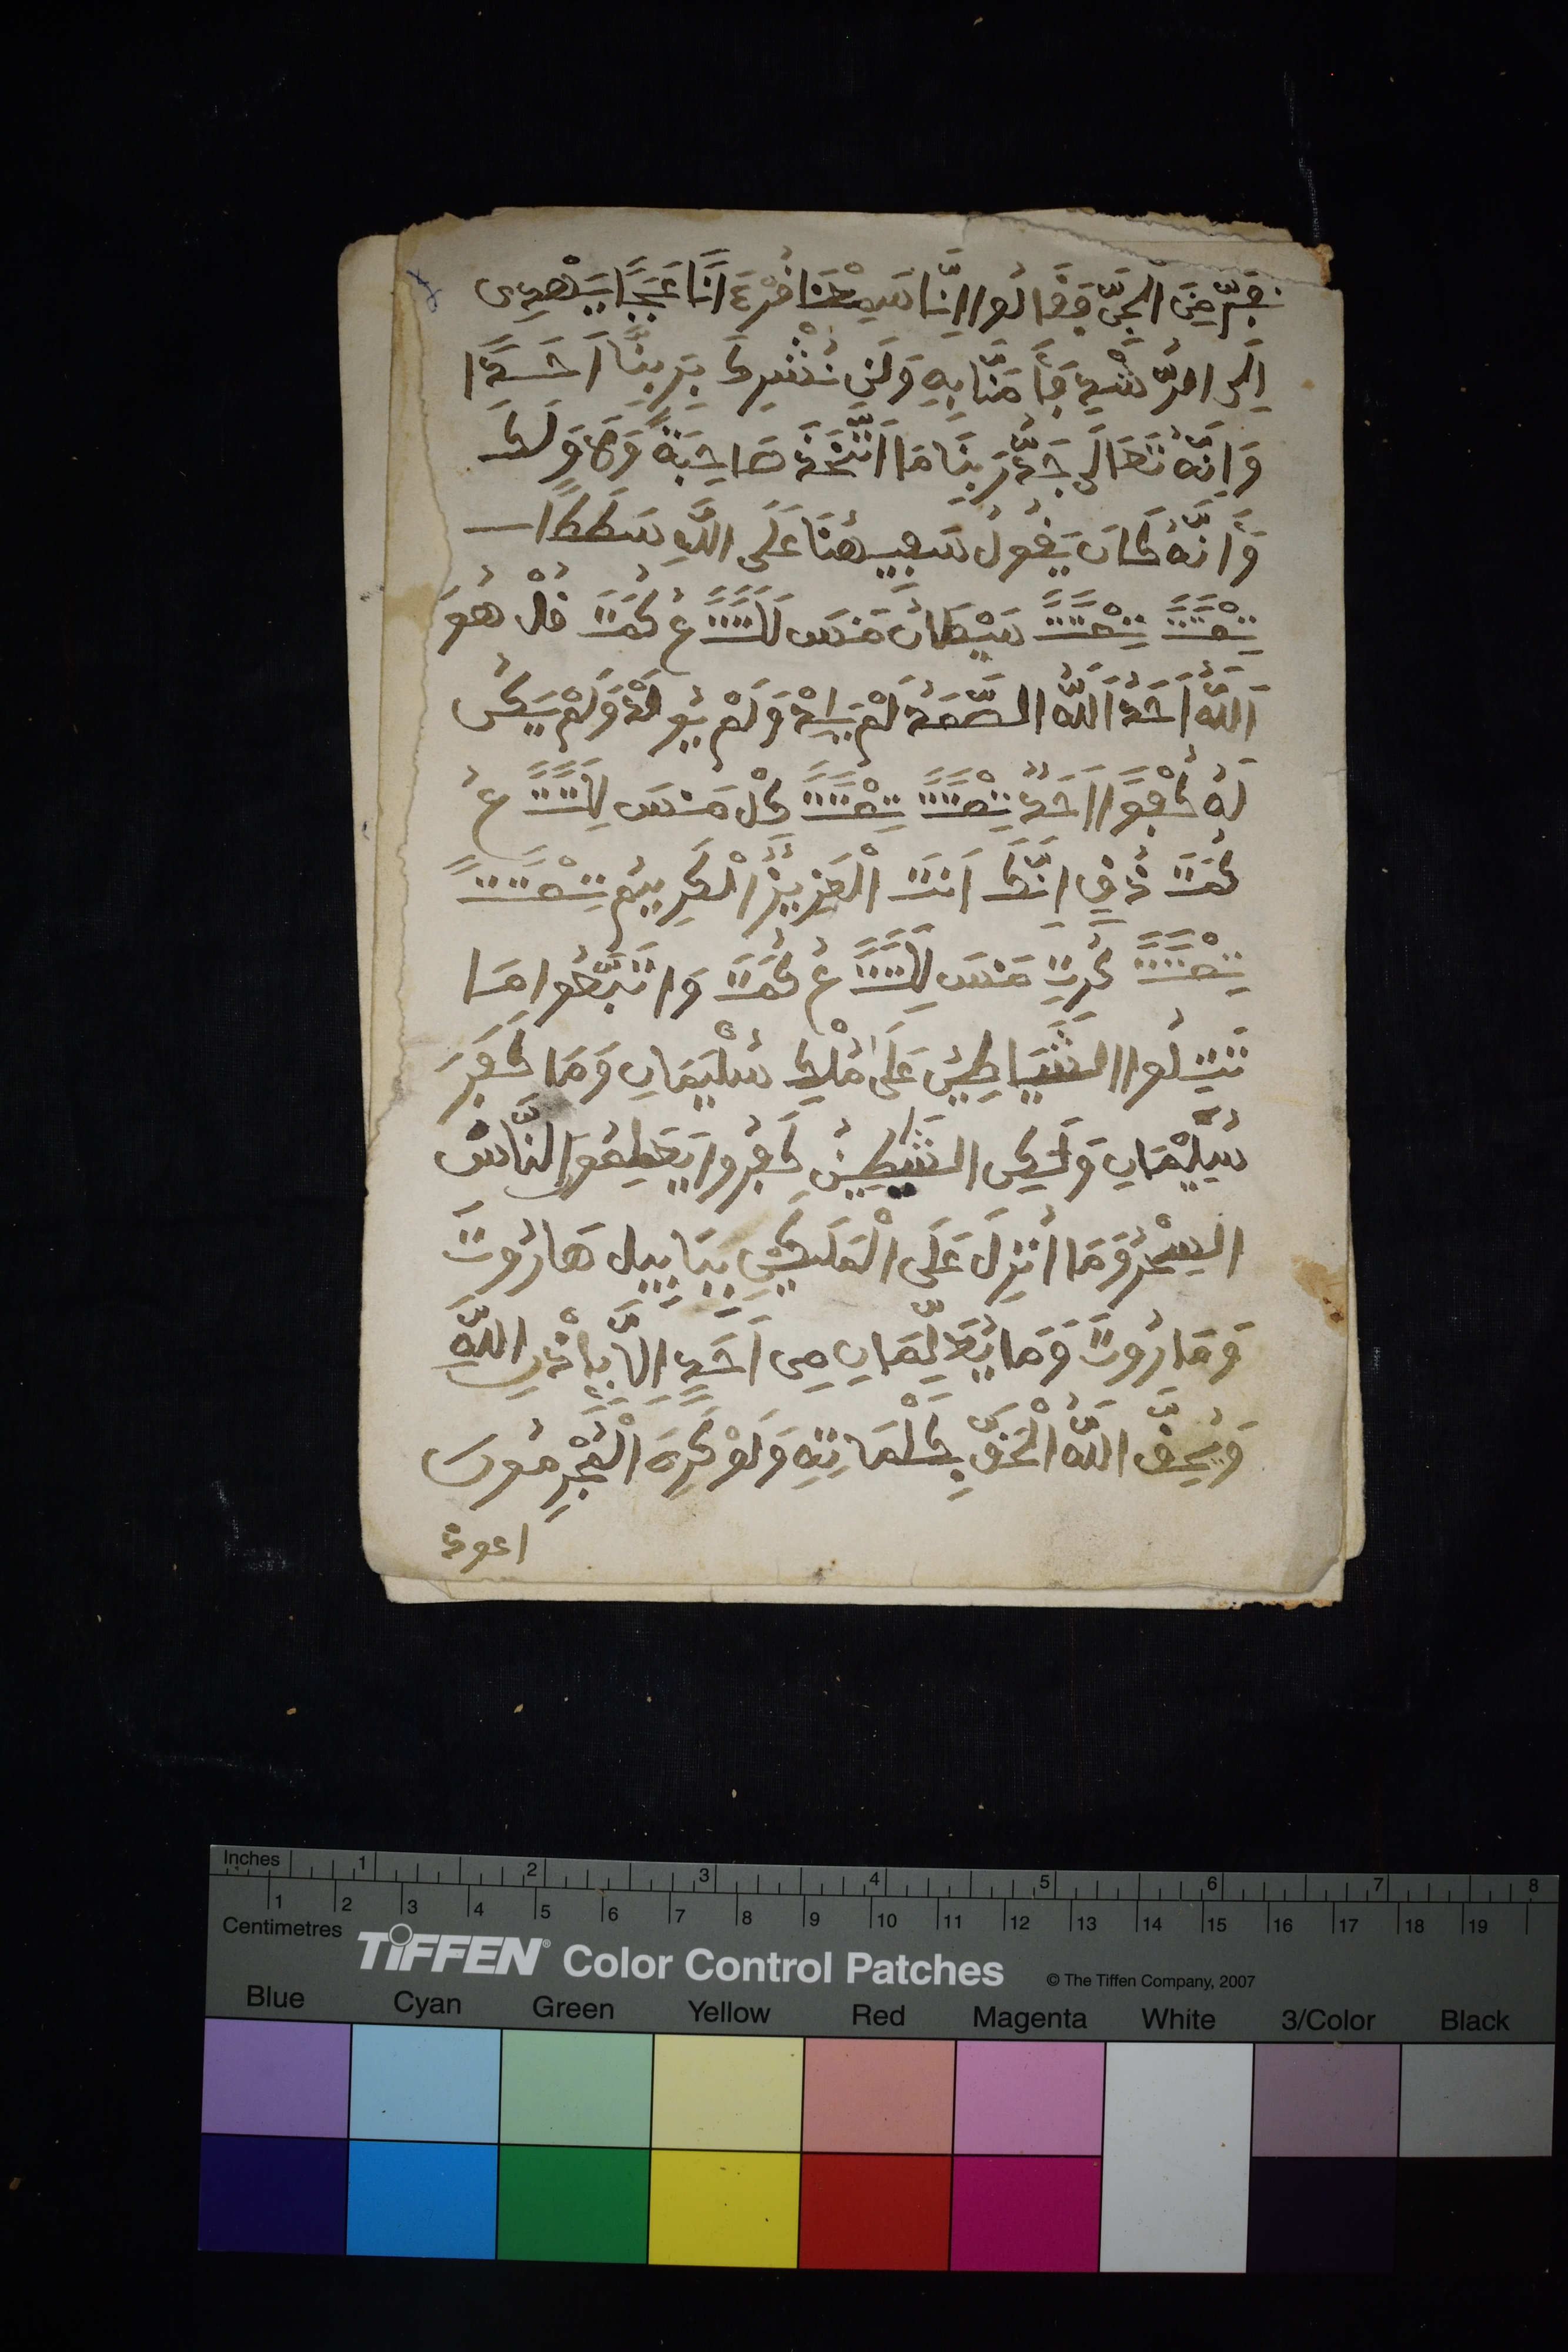 نَفَرٌ مِّنَ الْجِنِّ فَقَالُوا اِنَّا سَمِعْنَا قُرْءَانًا عَجَبًا يَهْدِى
اِلَى الرُّشْدِ فَأَمَنَّا بِهِ وَلَن نُّشْرِكَ بِرَبِّنَا اَحَدًا
وَاِنَّهُ تَعَالَى جَدُّ رَبِّنَا مَا اتَّخَذَ صَاحِبَةً وَلَا وَلَدًا
وَاَنَّهُ كَانَ يَقُولُ سَفِيهُنَا عَلَى اللَّهِ شَطَطًا
قُلْ هُوَ
اَللَّهُ اَحَدٌ اَللَّهُ الصَّمَدُ لَمْ يَلِدْ وَلَمْ يُولَدْ وَلَمْ يَكُن
لَهُ كُفُوًا اَحَدٌ
ذُقِ اِنَّكَ اَنتَ الْعَزِيزُ الْكَرِيمُ
وَاتَّبَعُوا مَا
تَتْلُوا الشَّيَاطِينُ عَلَى مُلْكِ سُلَيْمَانِ وَمَا كَفَرَ
سُلَيْمَانِ وَلَكِنَ الشَّيَطِينِ كَفَرُوا يُعَلِّمُونَ النَّاسَ
السِحْرُ وَمَا اُنزِلَ عَلَى الْمَلَكَيْنِ بِبَابِيل هَارُوتَ
وَمَارُوتَ وَمَا يُعَلِّمَانِ مِن اَحَدٍ اِلَّا بِاِذْنِ اللَّهِ
وَيُحِقُّ اللَّهُ الْحَقَّ بِكَلِمَاتِهِ وَلَوْ كَرِهَ الْمُجْرِمُونَ
اعوذ
Inches 1 2 3 4 5 6 7 8
1 2 3 4 5 6 7 8 9 10 11 12 13 14 15 16 17 18 19
Centimetres
TIFFEN® Color Control Patches © The Tiffen Company, 2007
Blue Cyan Green Yellow Red Magenta White 3/Color Black